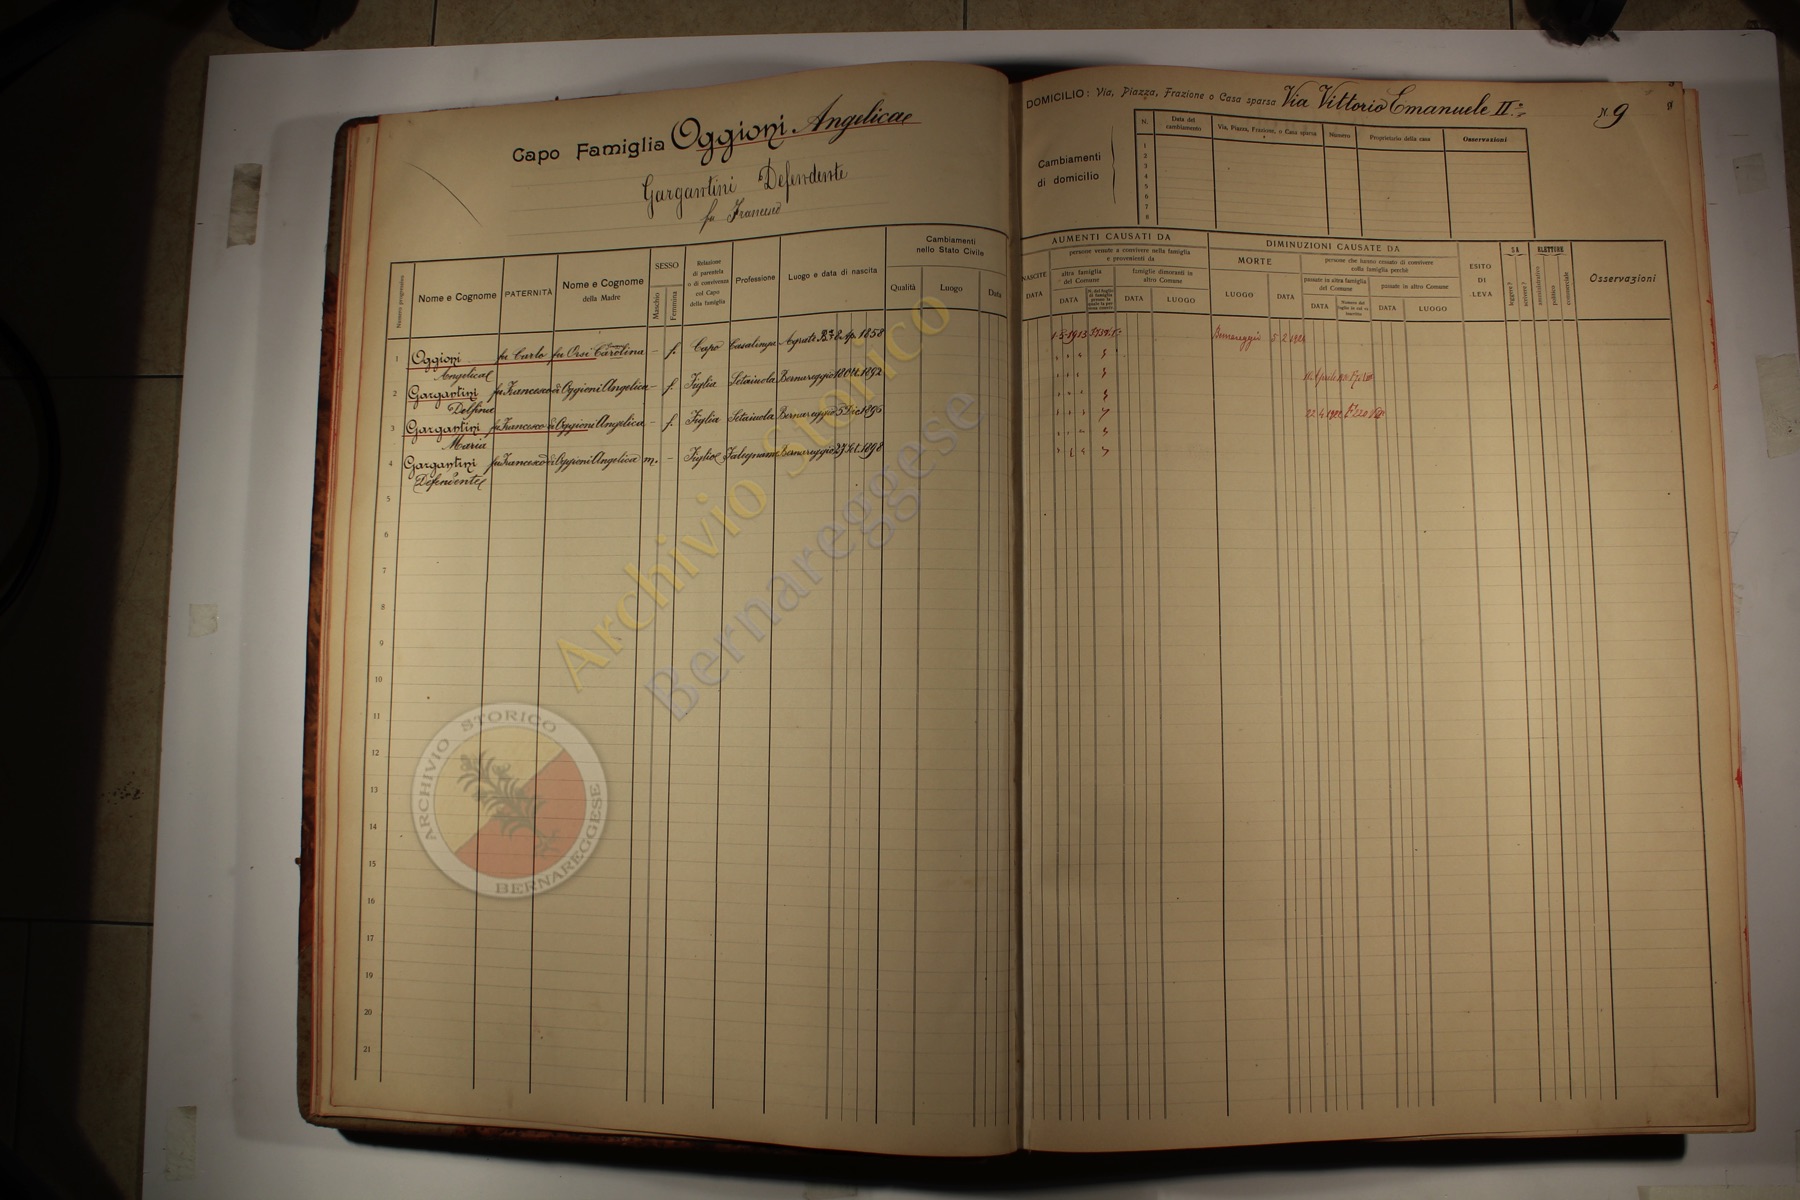 Capo Famiglia Oggioni Angelica
Gargantini Defendente
fu Francesco
Numero progressivo
Nome e Cognome
PATERNITÀ
Nome e Cognome
della Madre
SESSO
Maschio
Femmina
Relazione
di parentela
o di convivenza
col Capo
della famiglia
Professione
Luogo e data di nascita
Cambiamenti
nello Stato Civile
Qualità
Luogo
Data
1 Oggioni fu Carlo fu Orsi Carolina - f. Capo Casalinga Agrate Bza 8 Ap. 1858
Angelica
2 Gargantini fu Francesco di Oggioni Angelica - f. Figlia Setaiuola Bernareggio 1892
Delfina
3 Gargantini fu Francesco di Oggioni Angelica - f. Figlia Setaiuola Bernareggio 5 Dic 1895
Maria
4 Gargantini fu Francesco di Oggioni Angelica m. - Figlio Falegname Bernareggio 27 1898
Defendente
5
6
7
8
9
10
11
12
13
14
15
16
17
18
19
20
21
DOMICILIO: Via, Piazza, Frazione o Casa sparsa Via Vittorio Emanuele II°
N. 9
Cambiamenti
di domicilio
N.
Data del
cambiamento
Via, Piazza, Frazione, o Casa sparsa
Numero
Proprietario della casa
Osservazioni
1
2
3
4
5
6
7
8
AUMENTI CAUSATI DA
NASCITE
DATA
persone venute a convivere nella famiglia
e provenienti da
altra famiglia
del Comune
DATA
famiglie dimoranti in
altro Comune
DATA
LUOGO
DIMINUZIONI CAUSATE DA
MORTE
LUOGO
DATA
persone che hanno cessato di convivere
colla famiglia perchè
passate in altra famiglia
del Comune
DATA
passate in altro Comune
DATA
LUOGO
ESITO
DI
LEVA
SA
leggere?
scrivere?
ELETTORE
amministrativo
politico
commerciale
Osservazioni
1-5-1913
Bernareggio
Archivio Storico
Bernareggese
ARCHIVIO STORICO
BERNAREGGESE